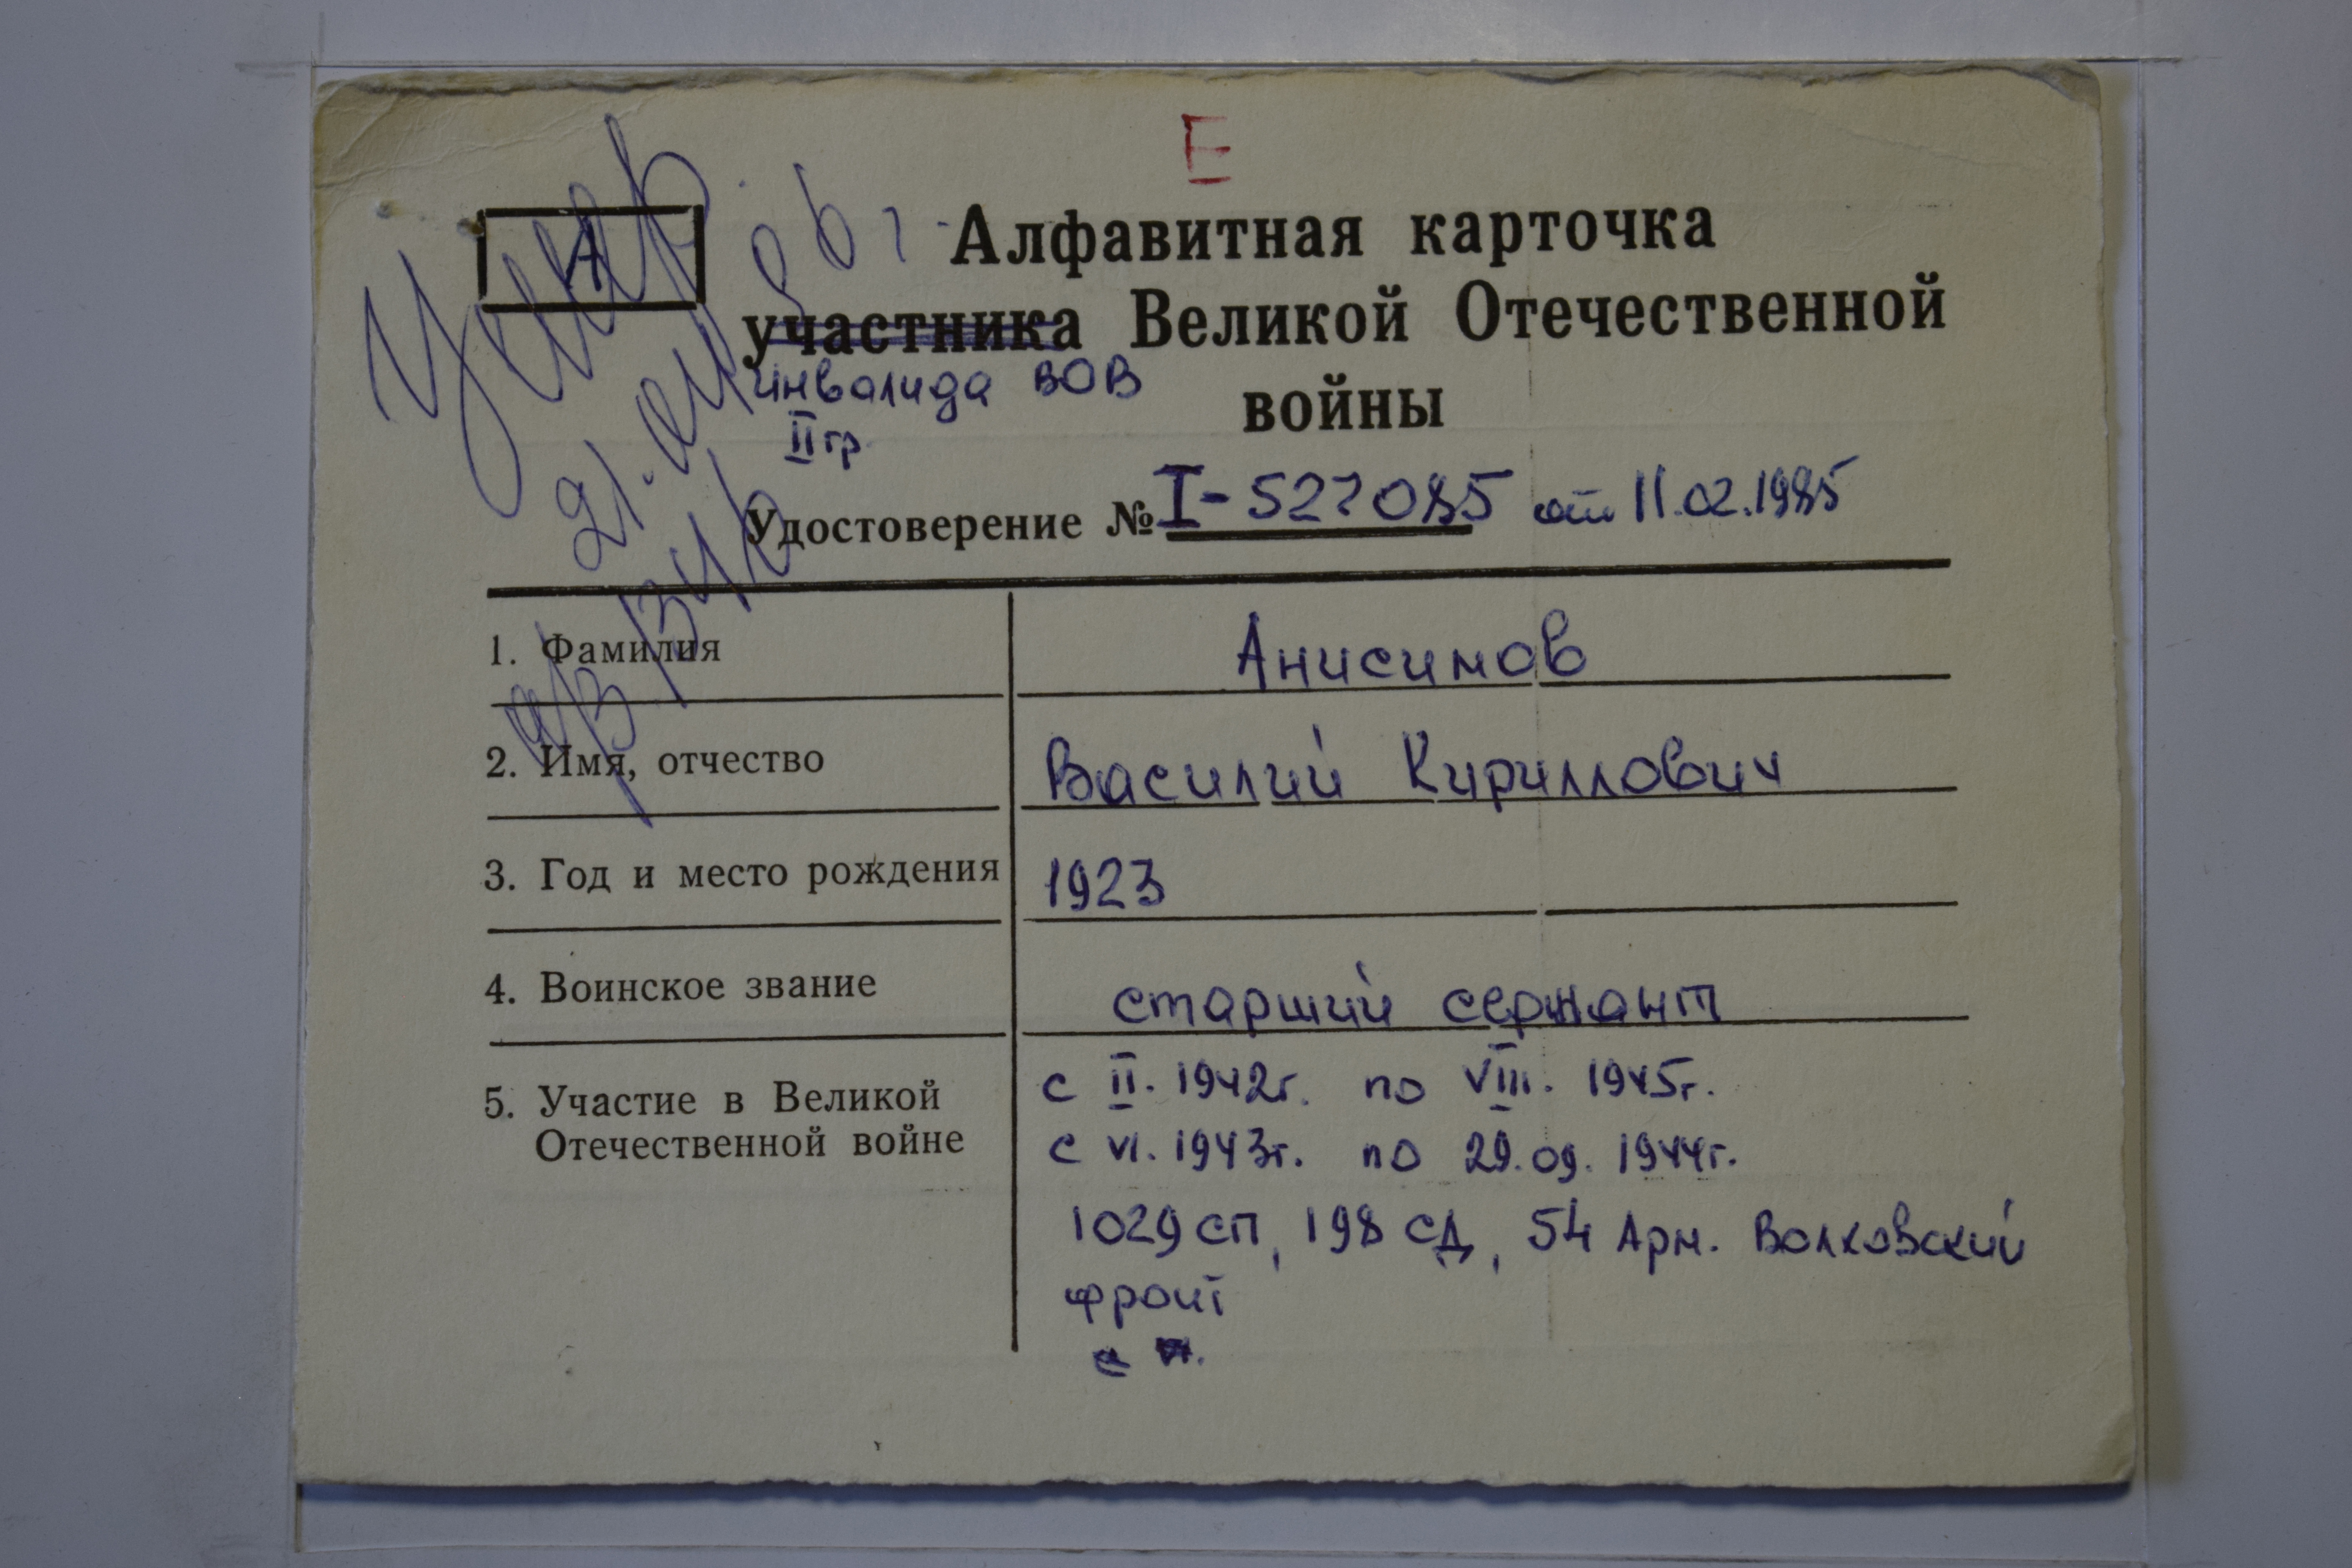 Е
А
Умер
Алфавитная карточка
участника Великой Отечественной
инвалида ВОВ
войны
II гр.
Удостоверение № I-527085 от 11.02.1985
1. Фамилия Анисимов
2. Имя, отчество Василий Кириллович
3. Год и место рождения 1923
4. Воинское звание старший сержант
5. Участие в Великой с II. 1942г. по VIII. 1945г.
Отечественной войне с VI. 1943г. по 29.09. 1944г.
1029 СП, 198 СД, 54 Арм. Волховский
фронт